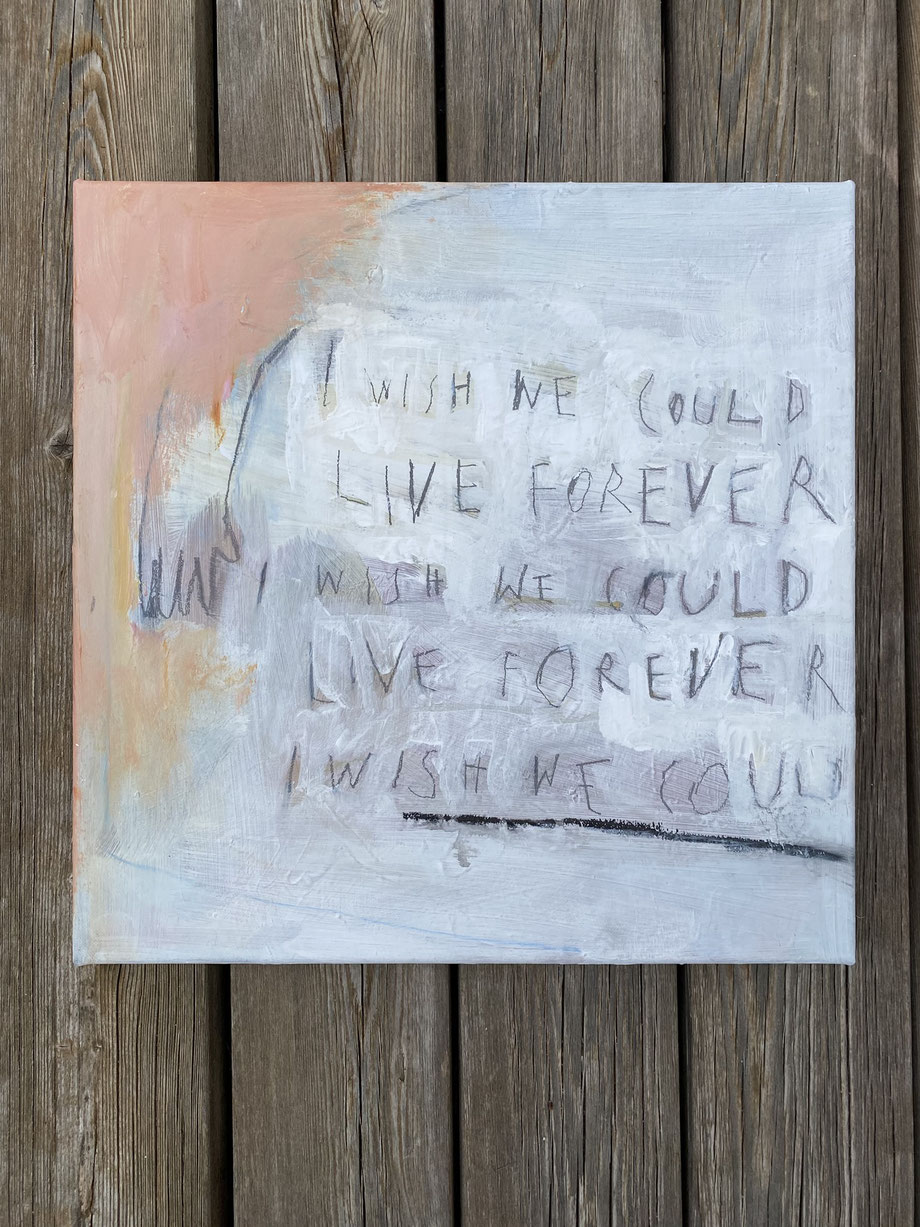 I WISH WE COULD
LIVE FOREVER
I WISH WE COULD
LIVE FOREVER
I WISH WE COULD